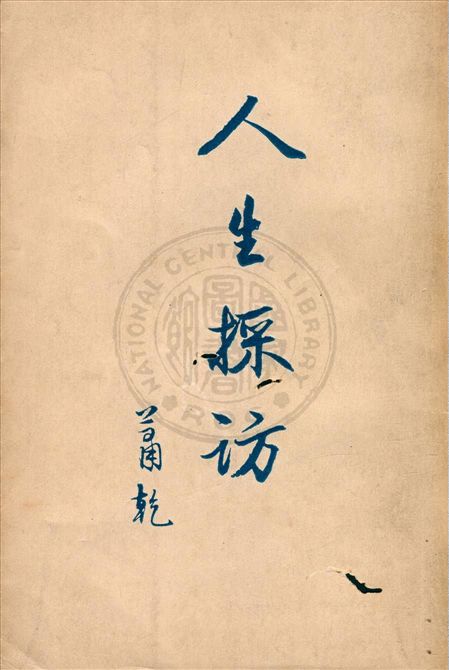 人生採訪
蕭乾
NATIONAL CENTRAL LIBRARY